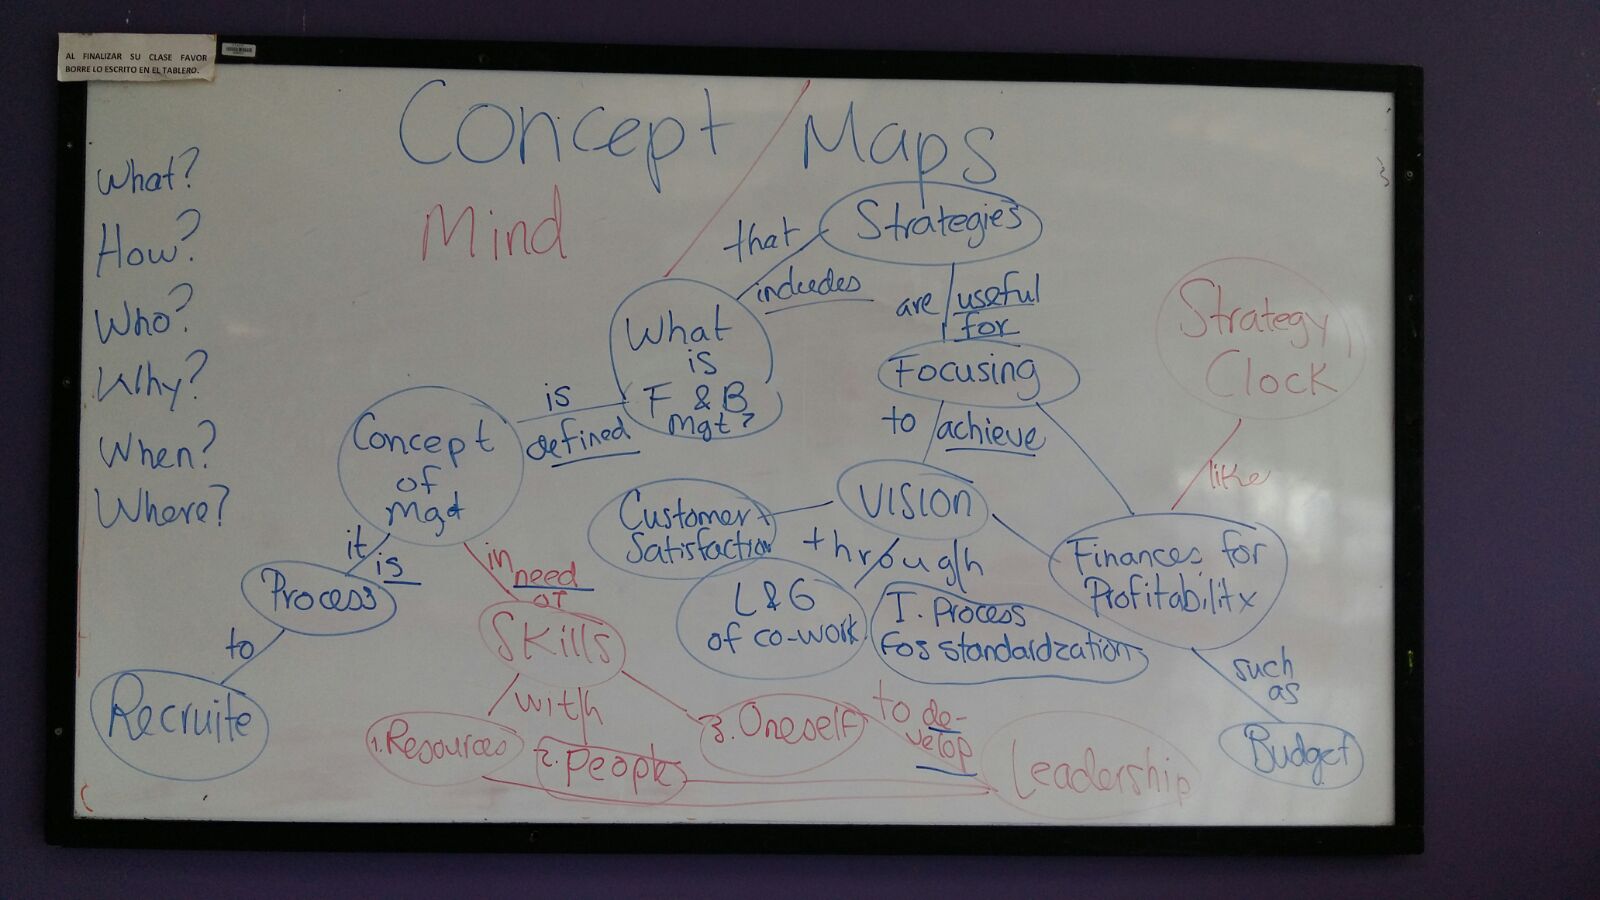 AL FINALIZAR SU CLASE FAVOR
BORRE LO ESCRITO EN EL TABLERO.
Concept / Maps
Mind
What?
How?
Who?
Why?
When?
Where?
What
is
F & B
Mgt?
that
includes
Strategies
are useful
for
Focusing
to achieve
VISION
Customer
Satisfaction
through
L & G
of co-work
I. Process
Fos standardzation
Finances for
Profitability
like
Strategy
Clock
such
as
Budget
is
defined
Concept
of
Mgt
it
is
Process
to
Recruite
in need
of
Skills
with
1. Resources
2. People
3. Oneself
to de-
velop
Leadership